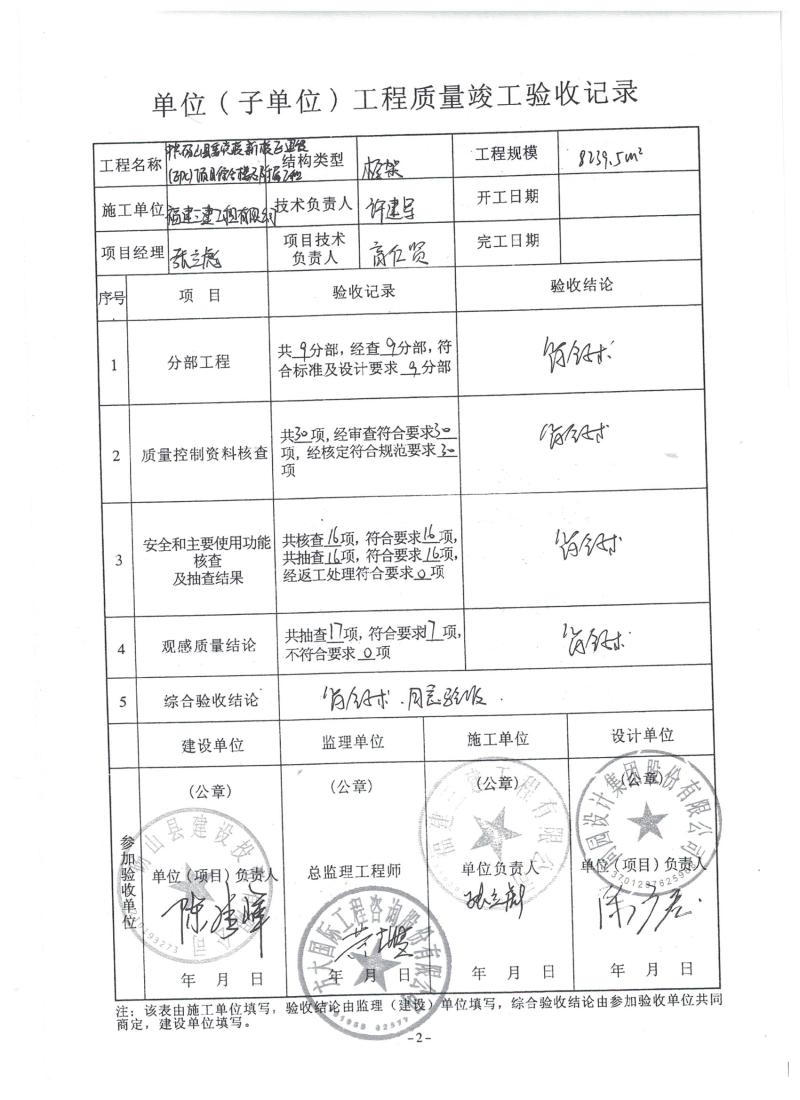 单位（子单位）工程质量竣工验收记录
工程名称
(EPC)项目
结构类型 框架 工程规模 8239.5m²
施工单位 福建二建工程有限公司 技术负责人 许建 开工日期
项目经理 项目技术负责人 完工日期
序号 项 目 验收记录 验收结论
1 分部工程
共9分部，经查9分部，符
合标准及设计要求 9分部
符合要求
2 质量控制资料核查
共30项，经审查符合要求30
项，经核定符合规范要求30
项
符合要求
3 安全和主要使用功能
核查
及抽查结果
共核查16项，符合要求16项，
共抽查16项，符合要求16项，
经返工处理符合要求0项
符合要求
4 观感质量结论
共抽查17项，符合要求17项，
不符合要求0项
符合要求
5 综合验收结论 符合要求．同意验收．
参加验收单位
建设单位 监理单位 施工单位 设计单位
(公章) (公章) (公章) (公章)
单位(项目)负责人 总监理工程师 单位负责人 单位(项目)负责人
年 月 日 年 月 日 年 月 日 年 月 日
山县建设投
公司
大国际工程咨询股份有限公司
福建二建工程有限公司
圆设计集团股份有限公司
注：该表由施工单位填写，验收结论由监理（建设）单位填写，综合验收结论由参加验收单位共同
商定，建设单位填写。
-2-